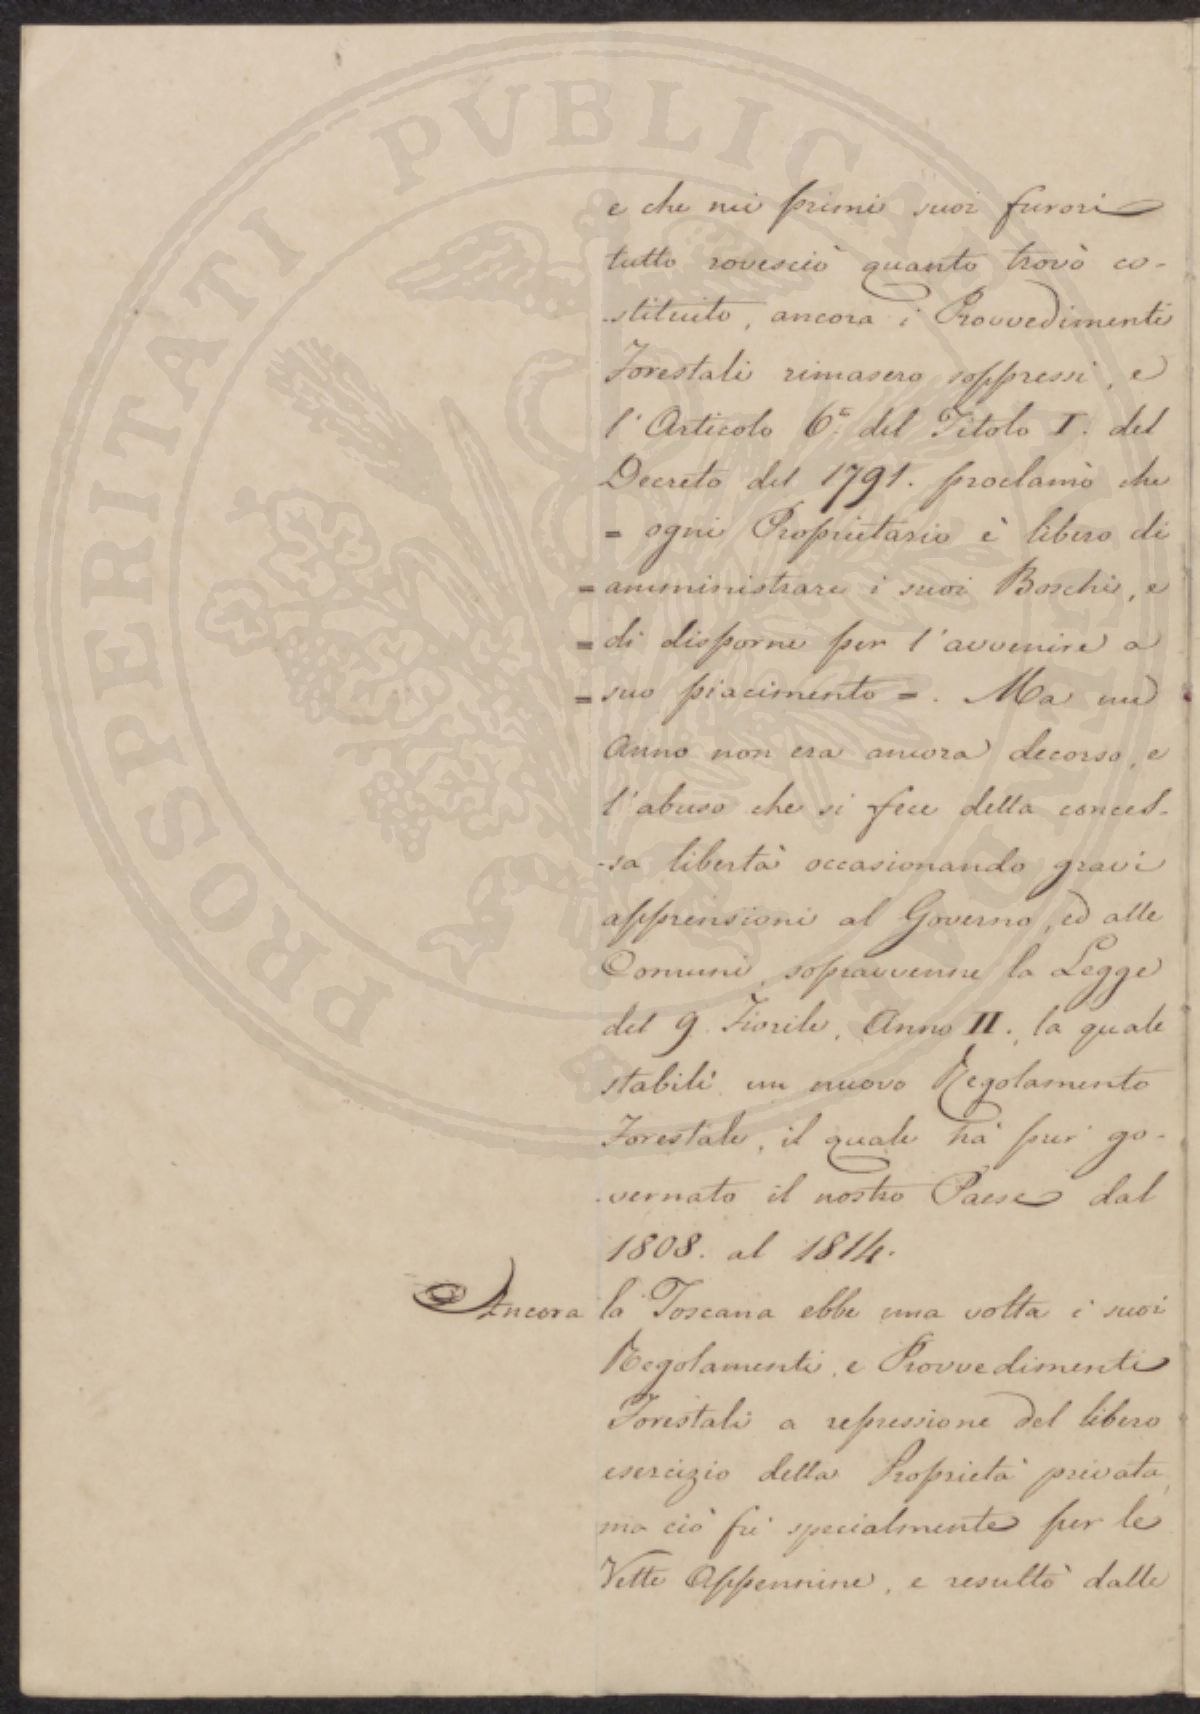 PROSPERITATI PVBLICAE AVGENDAE
e che nei primi suoi furori
tutto rovesciò quanto trovò co-
-stituito, ancora i Provvedimenti
Forestali rimasero soppressi, e
l'Articolo 6°. del Titolo I. del
Decreto del 1791. proclamò che
= ogni Proprietario è libero di
= amministrare i suoi Boschi, e
= di disporne per l'avvenire a
= suo piacimento =. Ma un
Anno non era ancora decorso, e
l'abuso che si fece della conces-
-sa libertà occasionando gravi
apprensioni al Governo, ed alle
Comuni, sopravvenne la Legge
del 9. Fiorile, Anno II., la quale
stabilì un nuovo Regolamento
Forestale, il quale hà pur go-
-vernato il nostro Paese dal
1808. al 1814.
Ancora la Toscana ebbe una volta i suoi
Regolamenti, e Provvedimenti
Forestali a repressione del libero
esercizio della Proprietà privata,
ma ciò fù specialmente per le
Vette Appennine, e resultò dalle